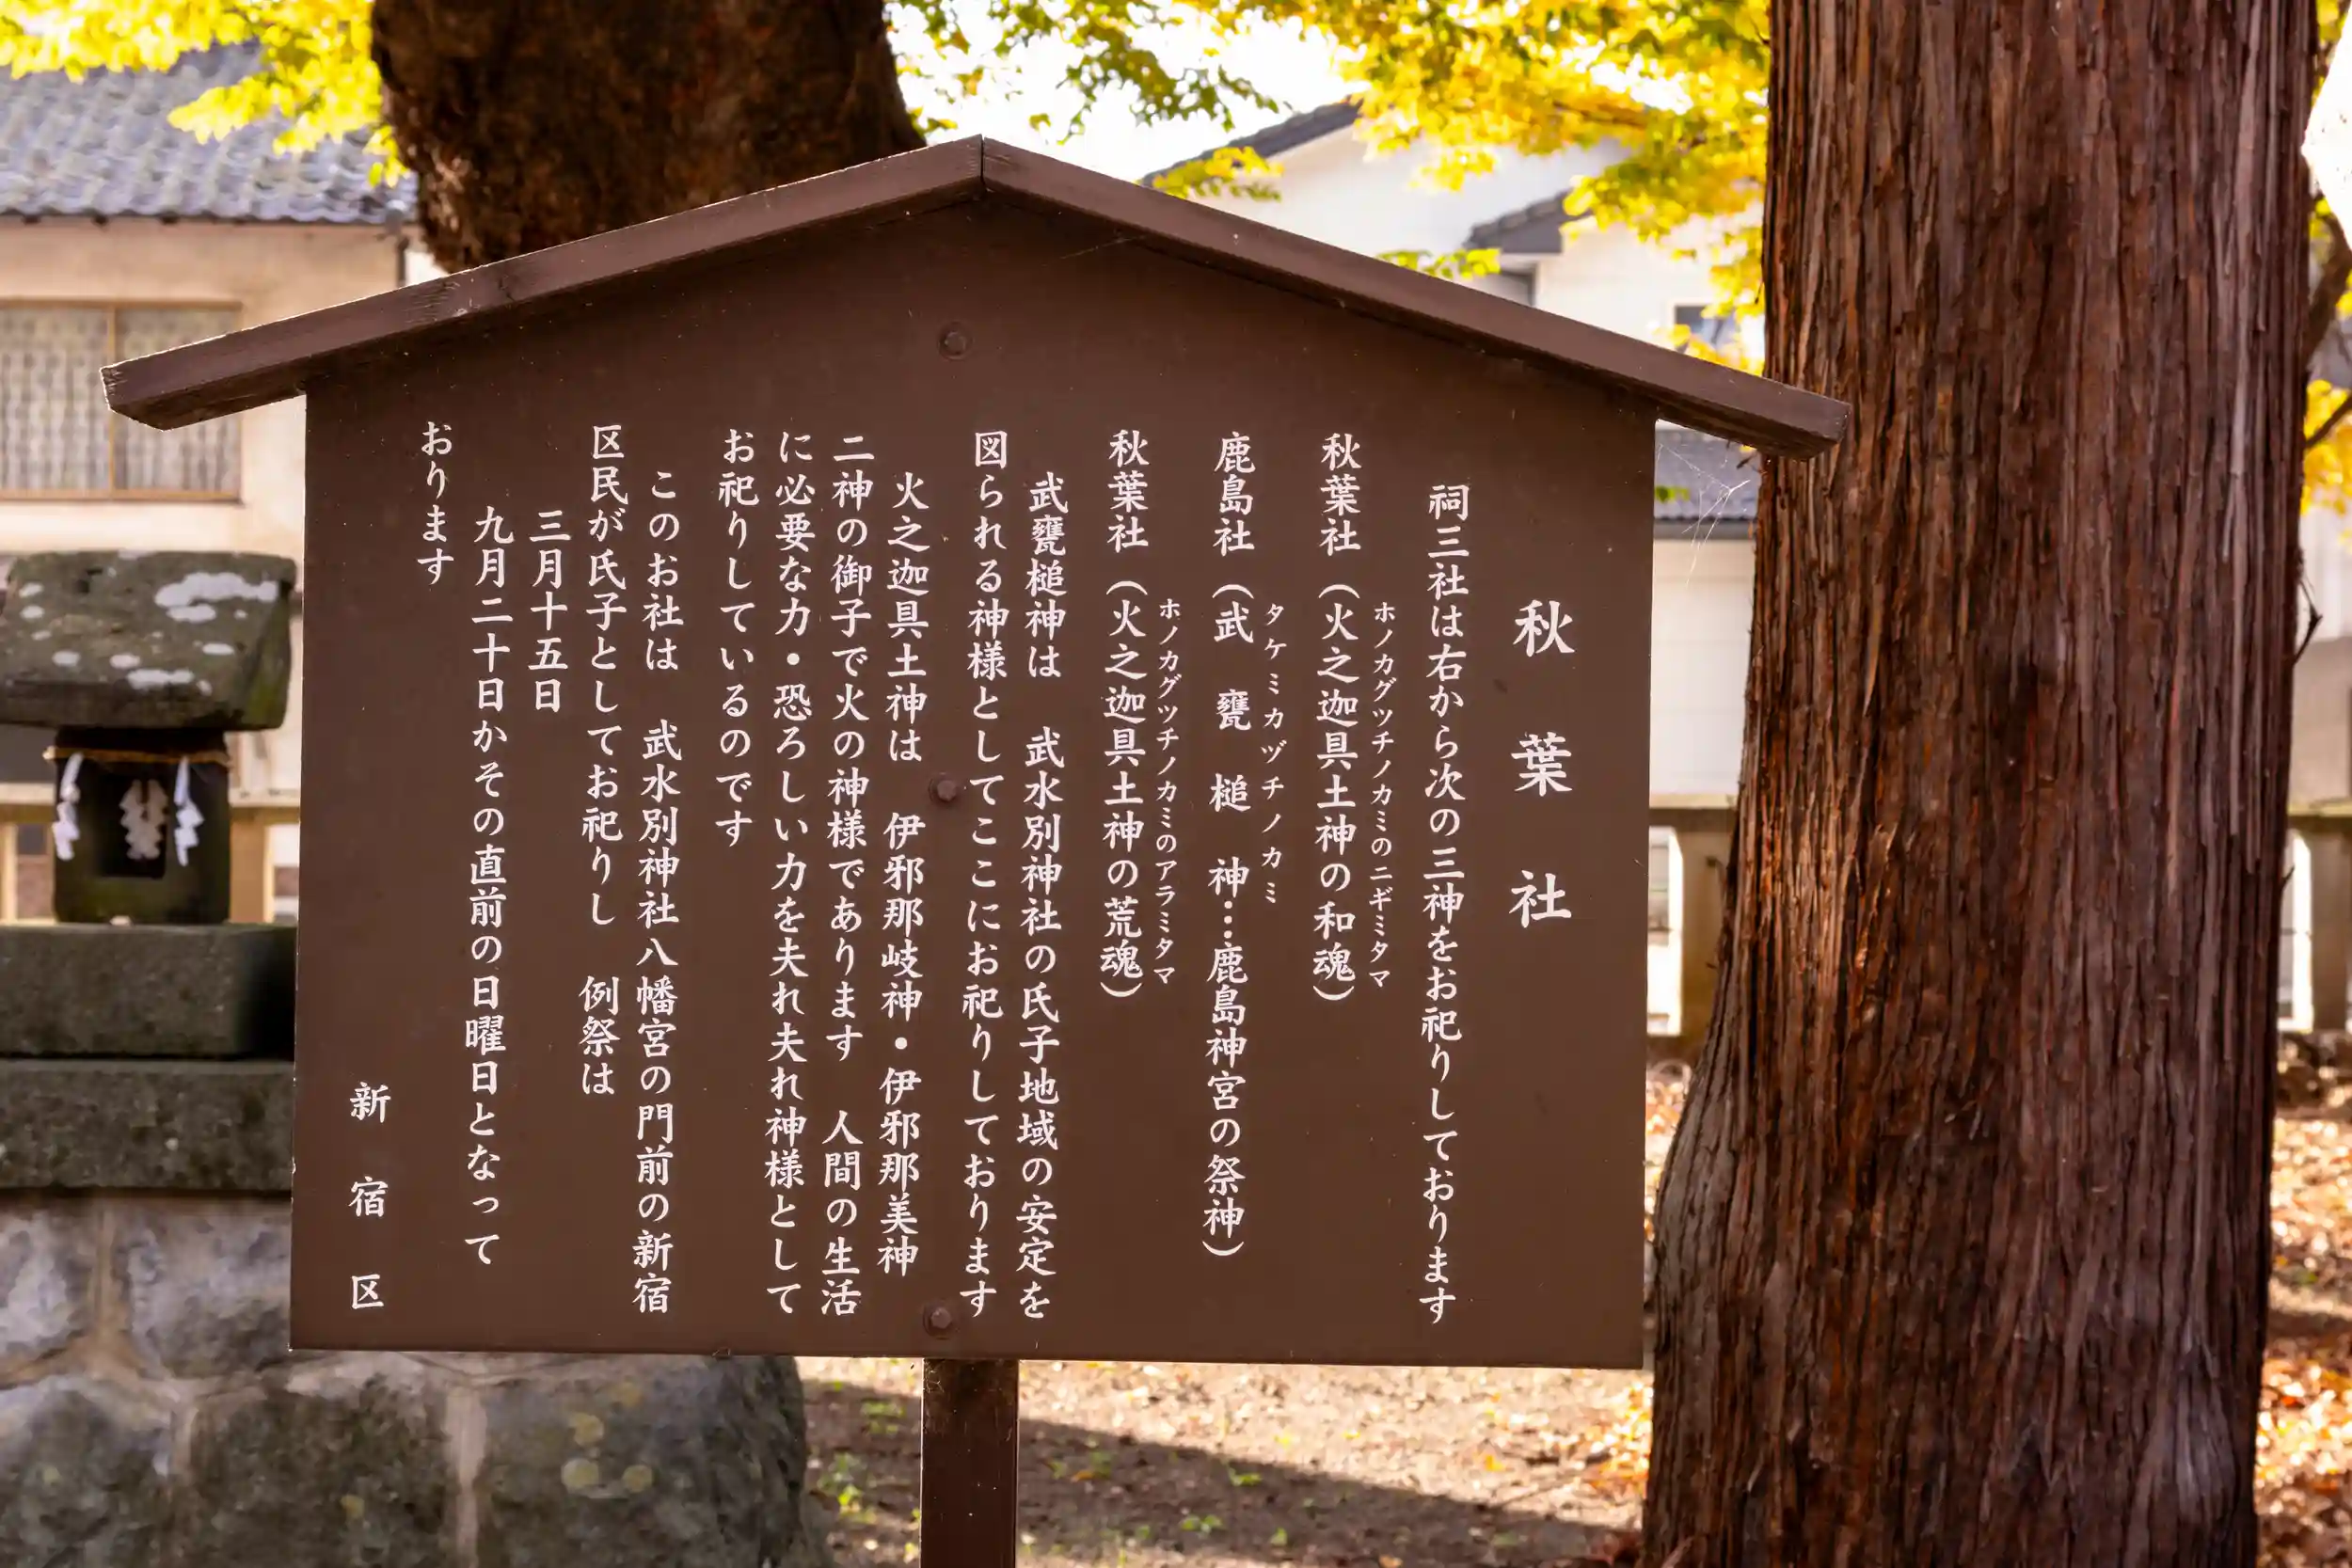 秋葉社
祠三社は右から次の三神をお祀りしております
ホノカグツチノカミのニギミタマ
秋葉社（火之迦具土神の和魂）
タケミカヅチノカミ
鹿島社（武甕槌神…鹿島神宮の祭神）
ホノカグツチノカミのアラミタマ
秋葉社（火之迦具土神の荒魂）
武甕槌神は　武水別神社の氏子地域の安定を
図られる神様としてここにお祀りしております
火之迦具土神は　伊邪那岐神・伊邪那美神
二神の御子で火の神様であります　人間の生活
に必要な力・恐ろしい力を夫れ夫れ神様として
お祀りしているのです
このお社は　武水別神社八幡宮の門前の新宿
区民が氏子としてお祀りし　例祭は
三月十五日
九月二十日かその直前の日曜日となって
おります
新宿区